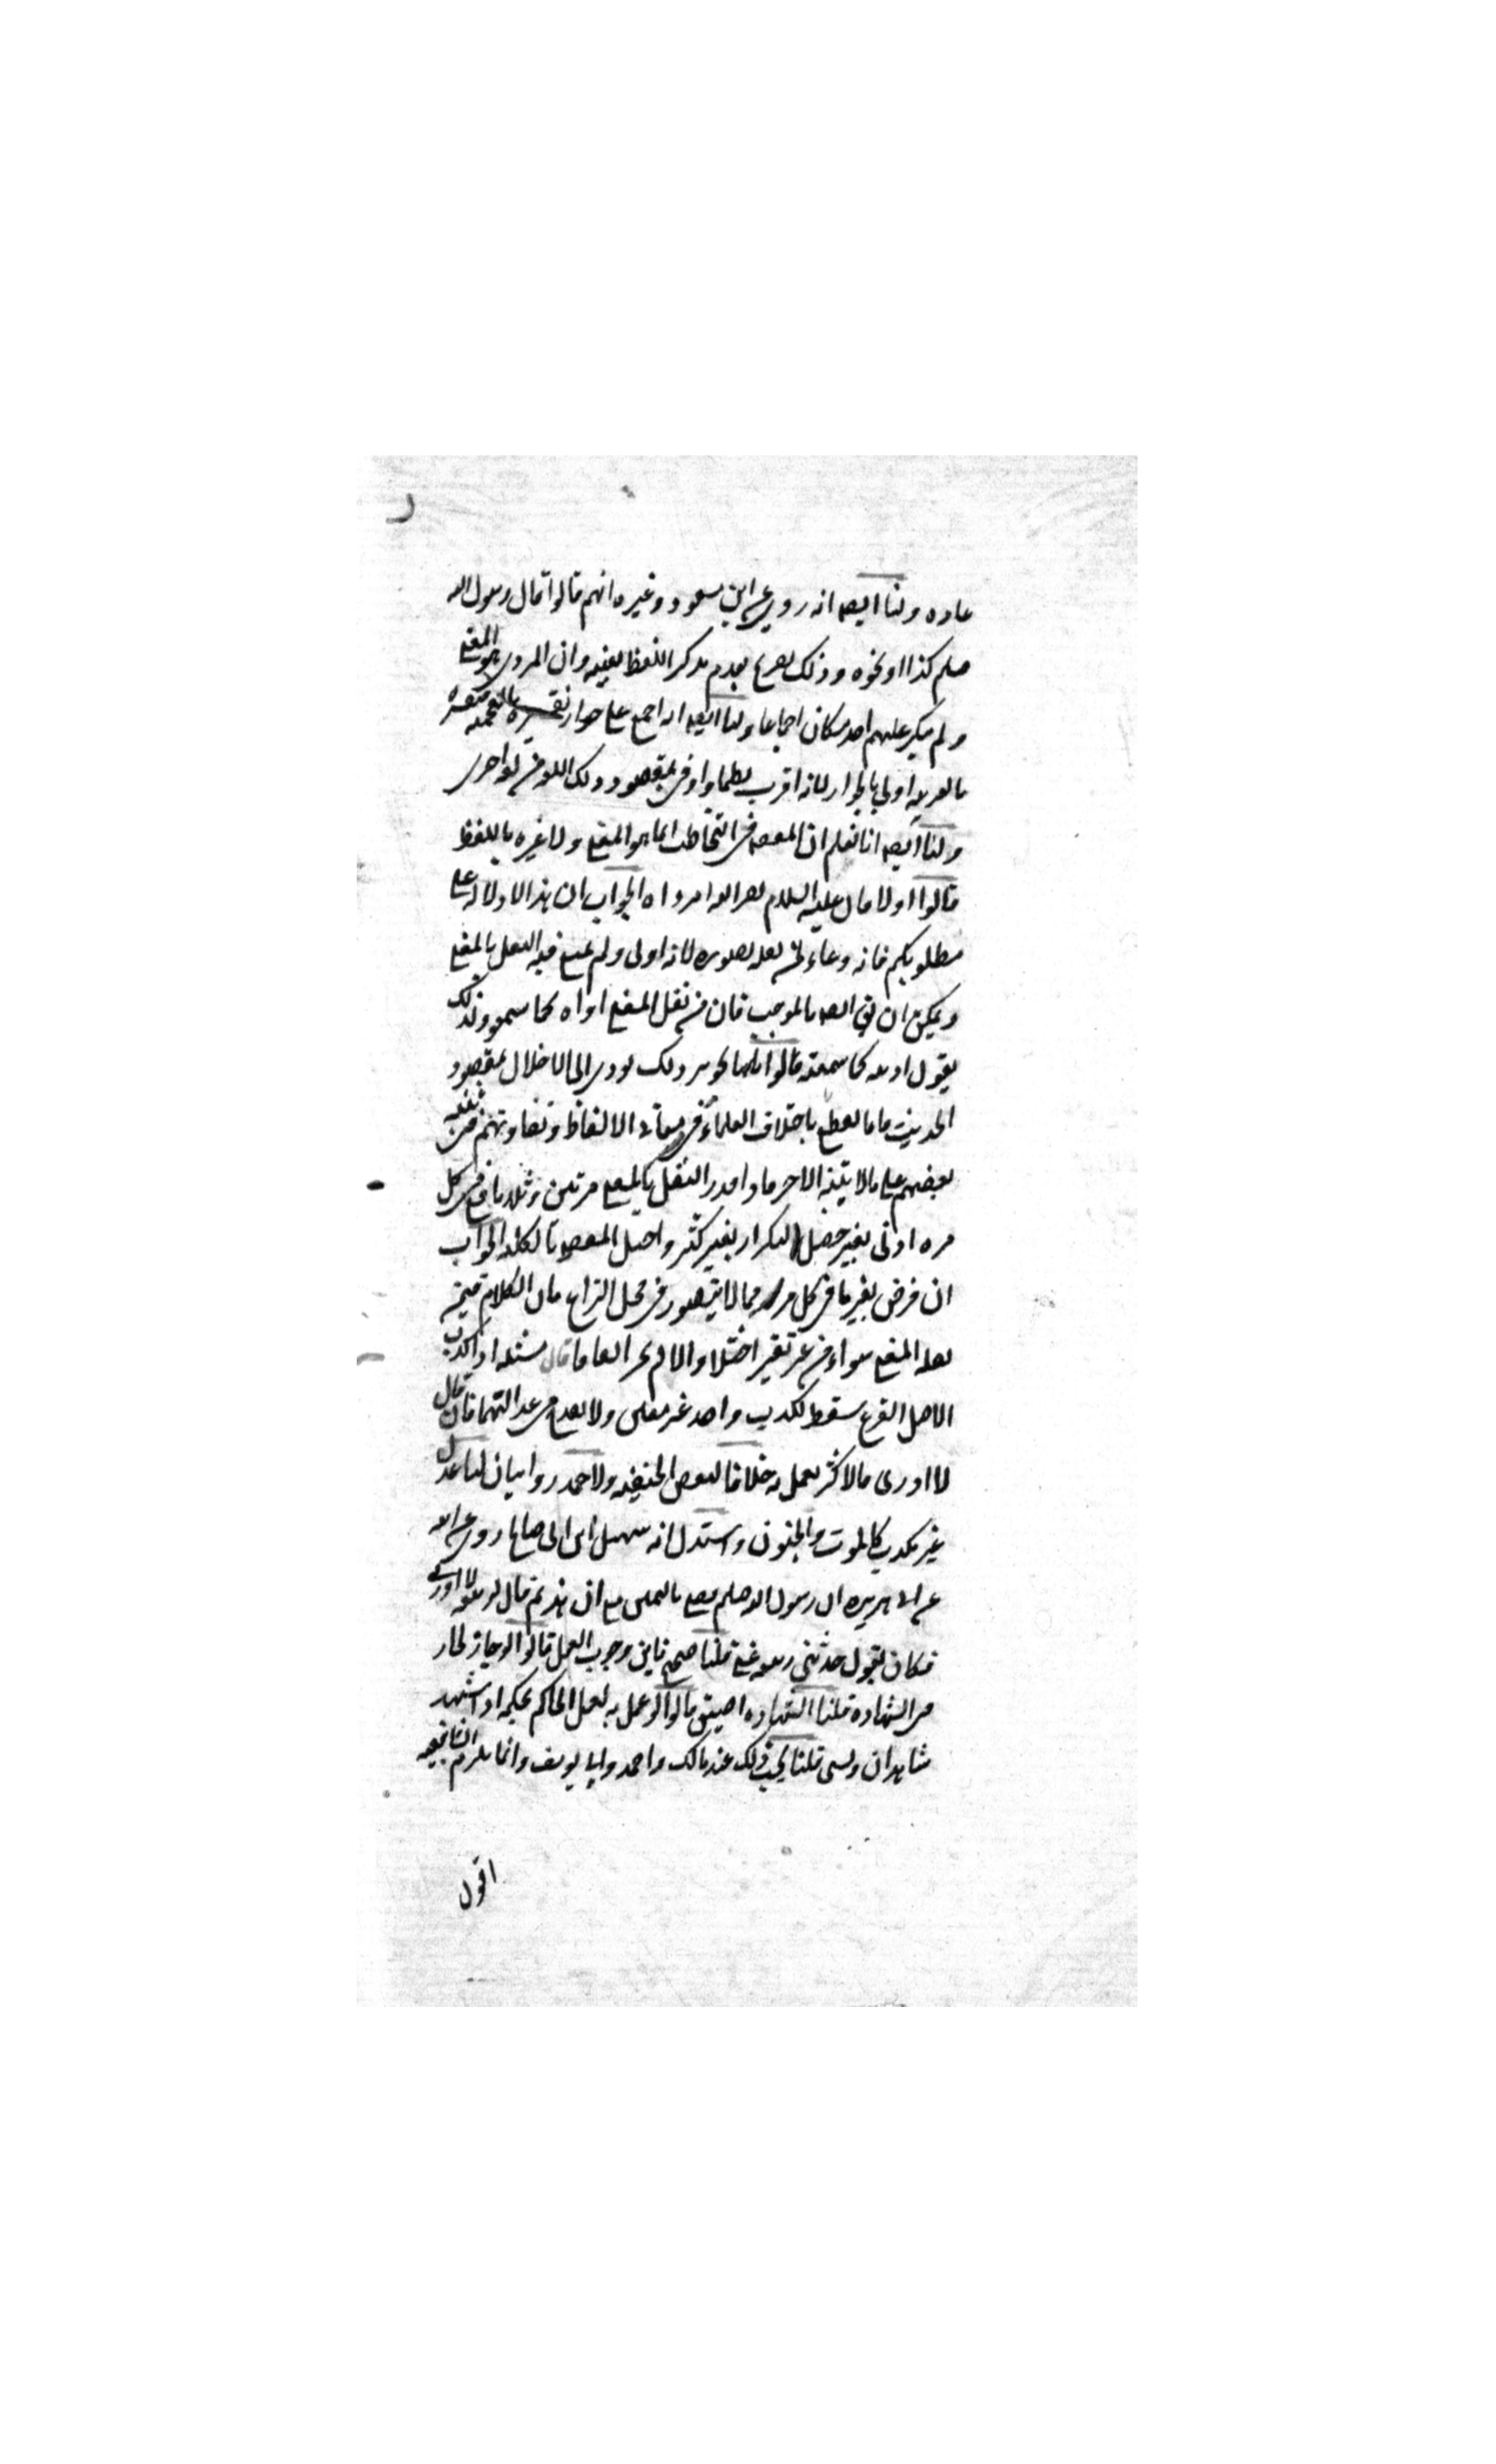 عاده ولنا ايضه انه روي عن ابن مسعود وغيره انهم قالوا قال رسول الله
صلم كذا او نحوه وذلك تصريح بعدم تذكر اللفظ بعينه وان المروي هو المعنى
ولم ينكر عليهم احد فكان اجماعا ولنا ايضه انه اجمع على جواز تفسيره بالعجميه فتفسيره
بالعربيه اولى بالجواز لانه اقرب نظما واوفى بمقصود تلك اللغه من لغه اخرى
ولنا ايضه انا نعلم ان المقصود في التخاطب انما هو المعنى ولا عبره باللفظ
قالوا اولا قال عليه السلام نضر الله امرءا ه الجواب ان هذا لا دلاله له على
مطلوبكم فانه دعاء لمن نقله بصورته لانه اولى ولم يمنع فيه النقل بالمعنى
ويمكن ان يق ايضه بالموجب فان من نقل المعنى اداه كما سمعه ولذلك
يقول اديته كما سمعته قالوا ثانيا تجويز ذلك يودي الى الاخلال بمقصود
الحديث فانا نقطع باختلاف العلماء في معاني الالفاظ وتفاوتهم في تنبه
بعضهم على ما لا يتنبه الاخر فاذا قدر النقل بالمعنى مرتين وثلاثا ووقع في كل
مره ادنى تغيير حصل بالتكرار تغيير كثير واختل المقصود بالكليه الجواب
ان فرض تغير ما في كل مره مما لا يتصور في محل النزاع فان الكلام فيمن
نقل المعنى سواء من غير تغير اختلا والا لم يجز اتفاقا قال مسئله اذا كذب
الاصل الفرع سقط لكذب واحد غير معين ولا يقدح في عدالتهما فان قال
لا ادري فالاكثر يعمل به خلافا لبعض الحنفيه ولاحمد روايتان لنا عدل
غير مكذب كالموت والجنون واستدل انه سهيل ابن ابي صالح روى عن ابيه
عن ابي هريره ان رسول الله صلم قضى باليمين مع الشاهد ثم قال لربيعه لا ادري
فكان يقول حدثني ربيعه عني قلنا صحيح فاين وجوب العمل قالوا لو جاز لجاز
في الشهاده قلنا الشهاده اضيق قالوا لو عمل به لعمل الحاكم بحكمه اذا شهد
شاهدان ونسي قلنا يجب ذلك عند مالك واحمد وابي يوسف وانما يلزم الشافعيه
اقول